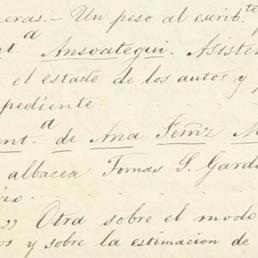 eras. - Un peso al escrib.te
nt.a Ansoategui. Asisten
el estado de los autos y p
pediente
nt.a de Ana Ferríz M
albacea Tomas S. Gard
rio
" Otra sobre el modo
os y sobre la estimacion de